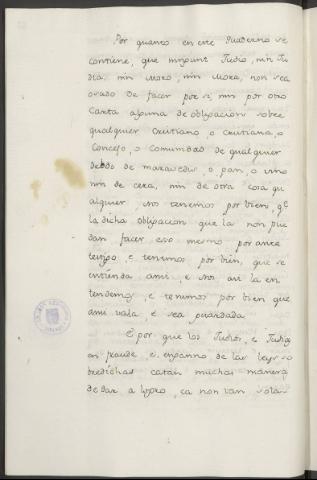 Por quanto en este Quaderno se
contiene, que ningunt Judio, nin Ju
dia, nin Moro, nin Mora, non sea
osado de facer por si, nin por otro
Carta alguna de obligacion sobre
qualquier Cristiano, o Cristiana, o
Concejo, o Comunidad de qualquier
debdo de maravedis, o pan, o vino
nin de cera, nin de otra cosa qu
alquier, Nos tenemos por bien, q.e
la dicha obligacion que la non pue
dan facer eso mesmo por ante
testigo e tenemos por bien, que se
entienda ansi, e Nos asi la en
tendemos, e tenemos por bien que
ansi vala, e sea guardada
E por que los Judios, e Judias
en fraude, e enganno de las leyes so
bredichas catan muchas maneras
de dar a logro, ca non van sola